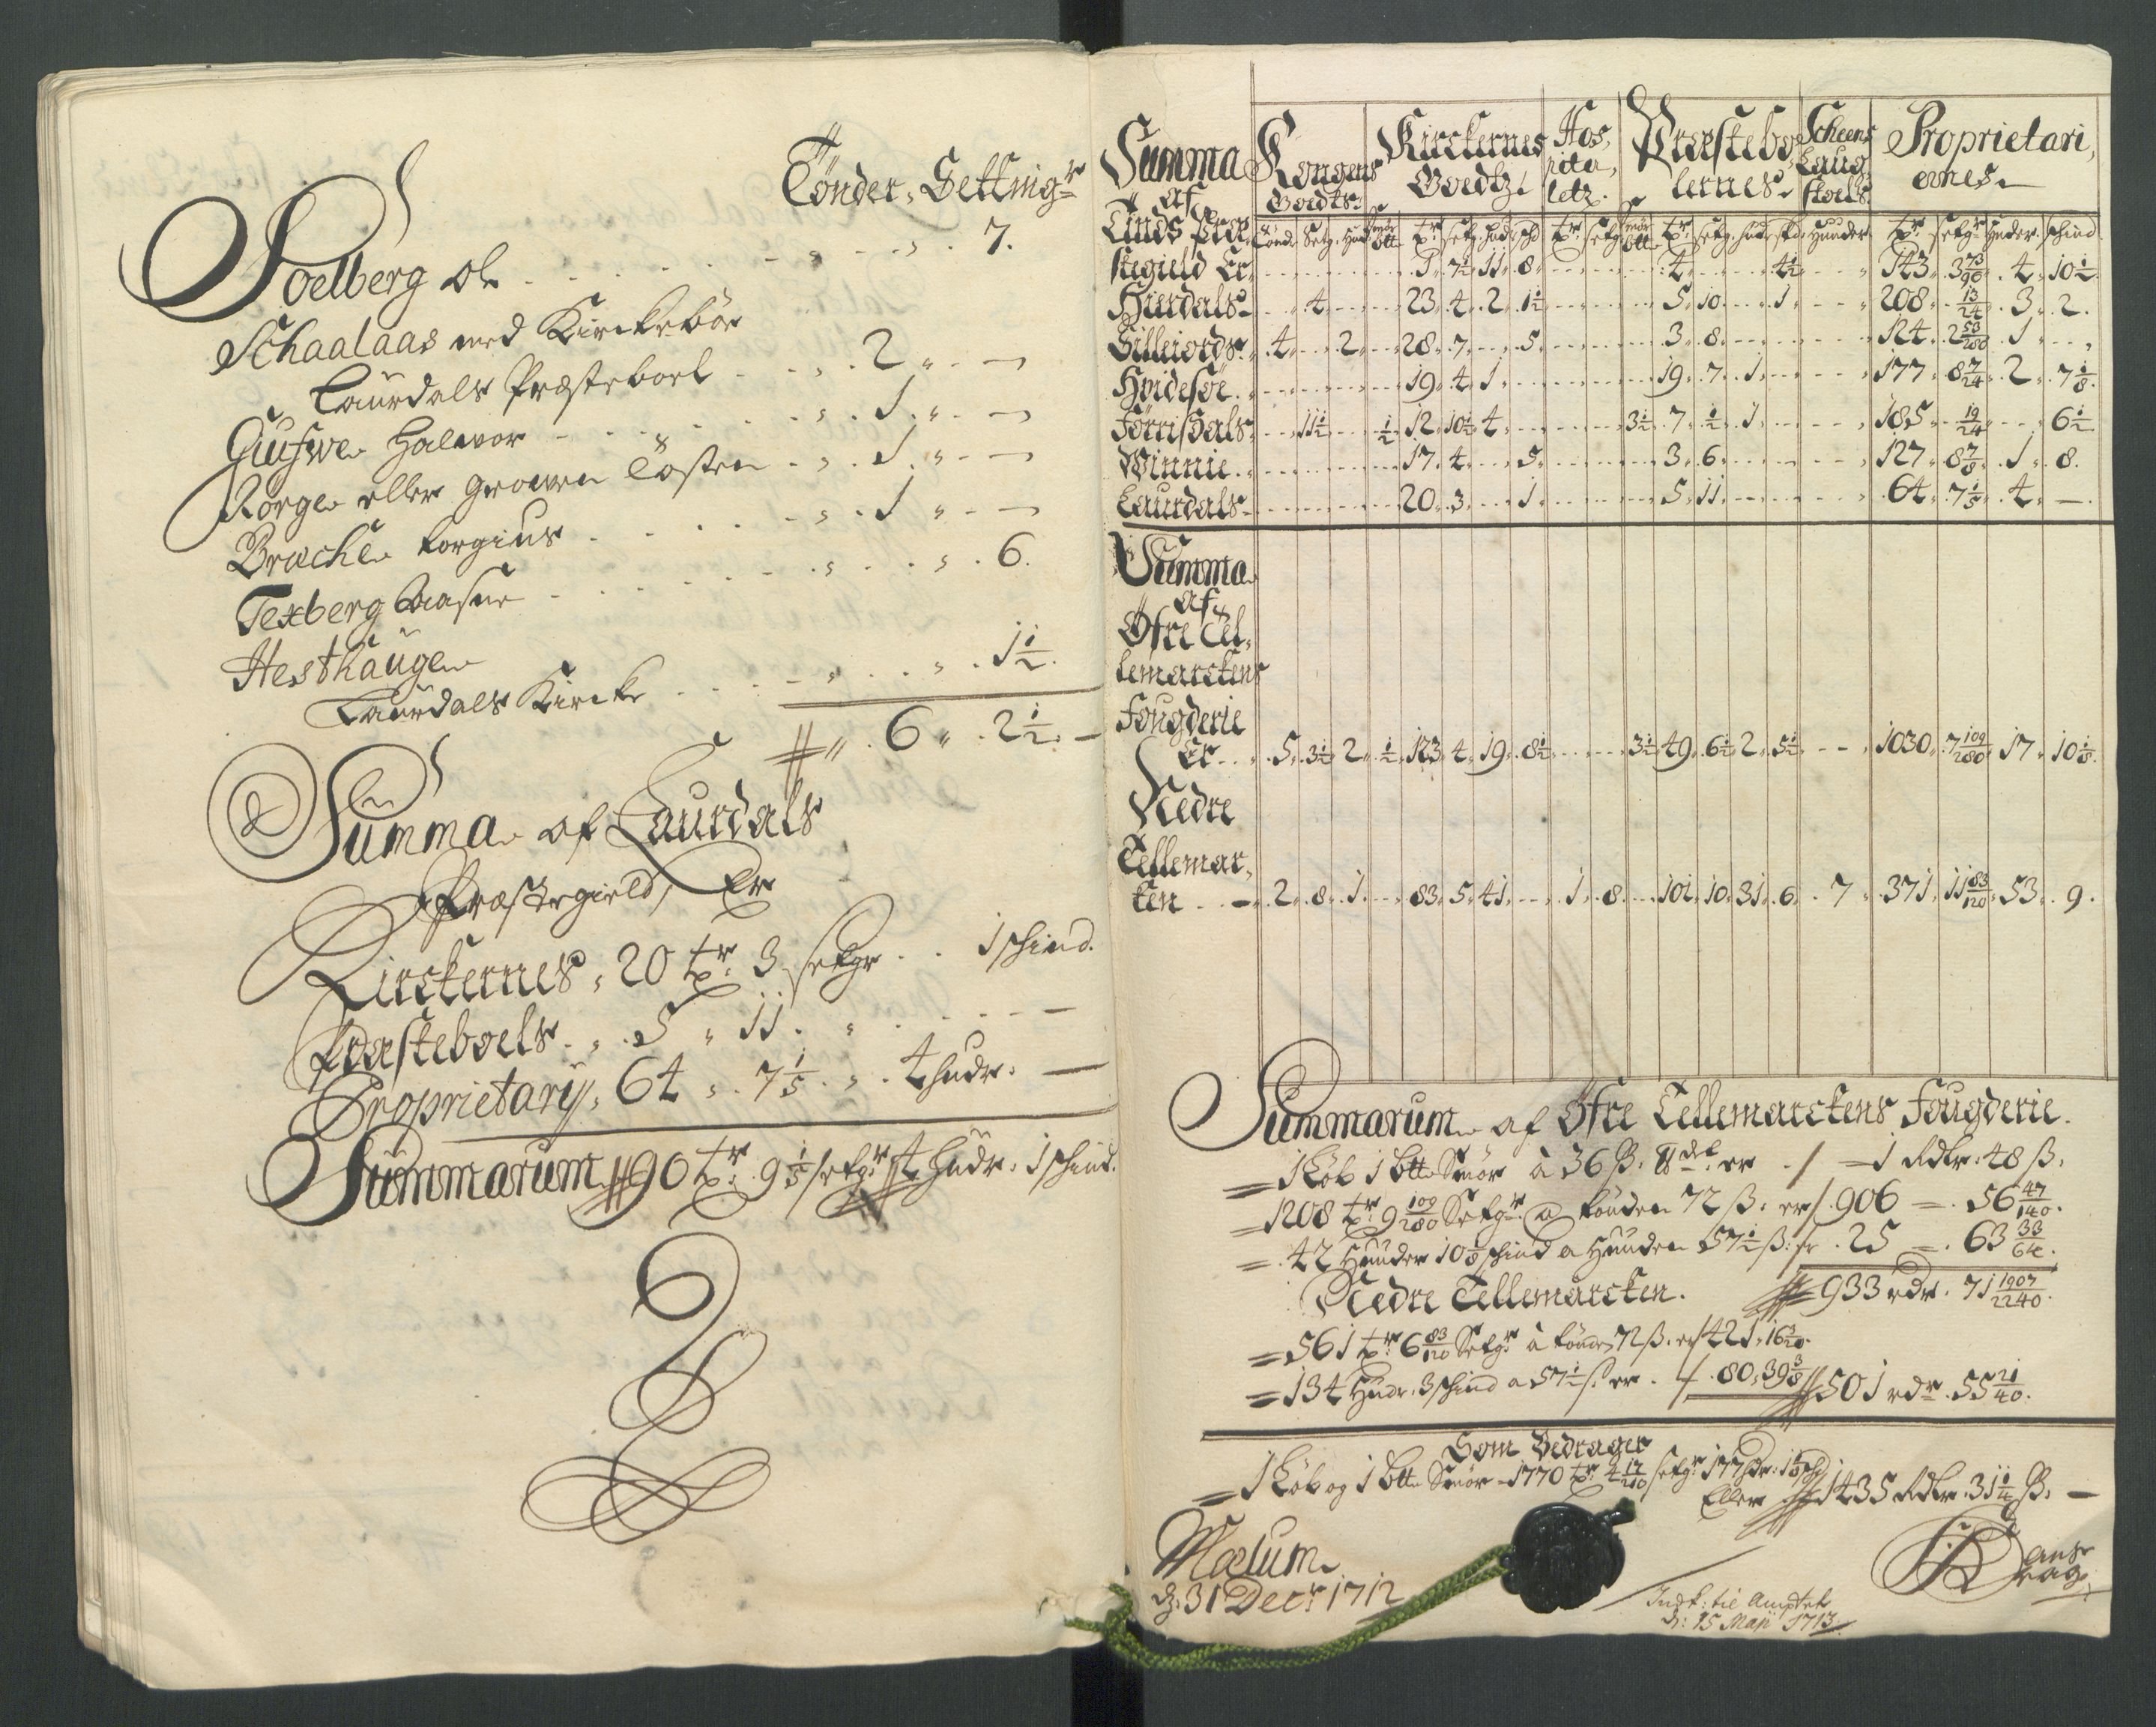 Tönder, Settingr
Soelberg Ole . . . . . 7.
Schaalaas med Kirckebön
Laurdals Præsteboel . . . 2 „ —
Gusweſ Halvor . . . 1 „ —
Rorge eller Growen Tosten . . . 1 „ —
Brochen torgius . . . 1 „ —
Texberg . . . 6.
Hesthaugen
Laurdals Kircke . . . 1 1/2.
6 „ 2 1/2. —
Summa af Laurdals
Præstegield, Er
Kirckernes, 20 tr. 3 setgr . . 1 skind.
Præsteboels . 5 „ 11 . . . —
Proprietarij, 64 „ 7 1/5 . 4 hudr. —
Summarum 90 tr. 9 1/5 setgr 4 hudr. 1 skind.
Summa af Kongens Goedtz. Kirckernes Goedtz. Hospitaletz. Præstebolernes. Scheens Laugstoels Proprietariernes.
Tinds Præ- Tönd. Setg. Hud. Smör btt tr. setg. hud. skd tr. setg. Smör btt tr. setg. hud. skd. Huuder tr. setgr Huder. skind
stegield Er . . 1 . 7 1/2 . 11 . 8 . . 4 . . 4 1/2 . . 143 . 3 73/90 . 4 . 10 1/2.
Hierdals . 4 . . 23 . 4 . 2 . 1 1/2 . . 5 . 10 . . 1 . . 208 . 13/24 . 3 . 2.
Silleiords . 4 . . 2 . . 28 . 7 . . 5 . . 3 . 8 . . 124 . 2 53/280 . 1 . .
Hvidesöe . . 19 . 4 . 1 . . 19 . 7 . 1 . . 177 . 8 7/24 . 2 . 7 1/8.
Förrißdals . . 11 1/2 . . 1/2 . 12 . 10 1/2 . 4 . . 3 1/2 . 7 . 1/2 . 1 . . 185 . 19/24 . . 6 1/2
Winnie . . 17 . 4 . . 5 . . 3 . 6 . . 127 . 8 7/8 . 1 . 8.
Laurdals . . 20 . 3 . . 1 . . 5 . 11 . . 64 . 7 1/5 . 4 . —.
Summa
af
Öfre Tel-
lemarckens
Fougderie
Er . . 5 . 3 1/2 . 2 . 1/2 . 123 . 4 . 19 . 8 1/2 . . 3 1/2 . 49 . 6 1/2 . 2 . 5 1/2 . — . 1030 . 7 109/280 . 17 . 10 1/8.
Nedre
Tellemar-
ken . . 2 . 8 . 1 . . 83 . 5 . 41 . . 1 . 8 . . 101 . 10 . 31 . 6 . 7 . 371 . 11 83/120 . 53 . 9.
Summarum af Öfre Tellemarckens Fougderie.
1 Löb 1 btt Smör à 36 ß. er . / — 1 Rdlr. 48 ß.
1208 tr. 9 109/280 Setgr a tönden 72 ß. er / 906 — 56 47/140.
42 Huuder 10 1/8 skind a Huuden 57 1/2 ß. er . 25 — . 63 33/64.
Nedre Tellemarcken. 933 rdr. 71 1907/2240.
561 tr. 6 83/120 Setgr à tönde 72 ß. er / 421, 16 3/20.
134 Hudr. 3 skind a 57 1/2 ß. er . / 80, 39 3/8 501 rdr. 55 21/40.
Som Bedrager
1 Löb og 1 btt Smör 1770 tr. 4 17/210 setgr 177 hdr. 1 1/8 skd
Eller 1435 Rdlr. 31 1/4 ß. —
Mælum
d. 31 Decr. 1712
Indk: til Amptet
d: 15 Maji 1713.